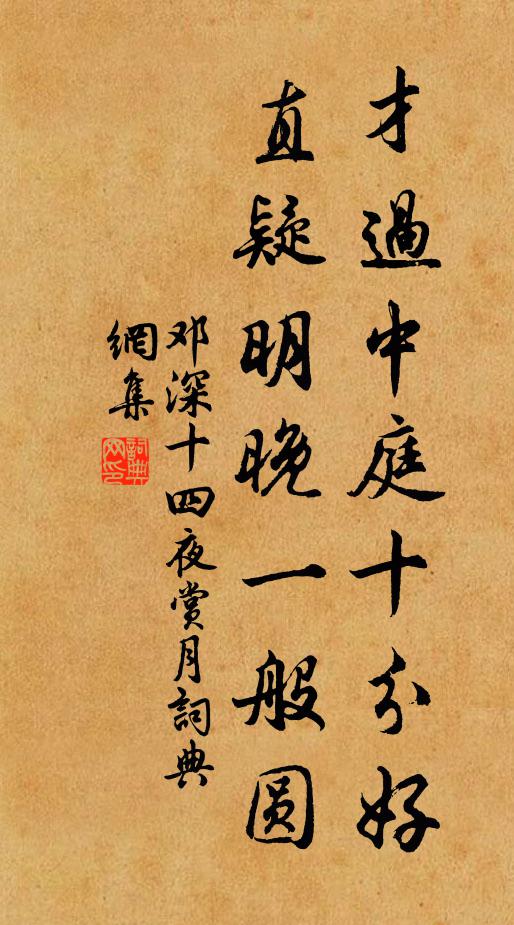 才過中庭十分好
直疑明晚一般圆
邓深十四夜赏月詞典
網集
詞典网印